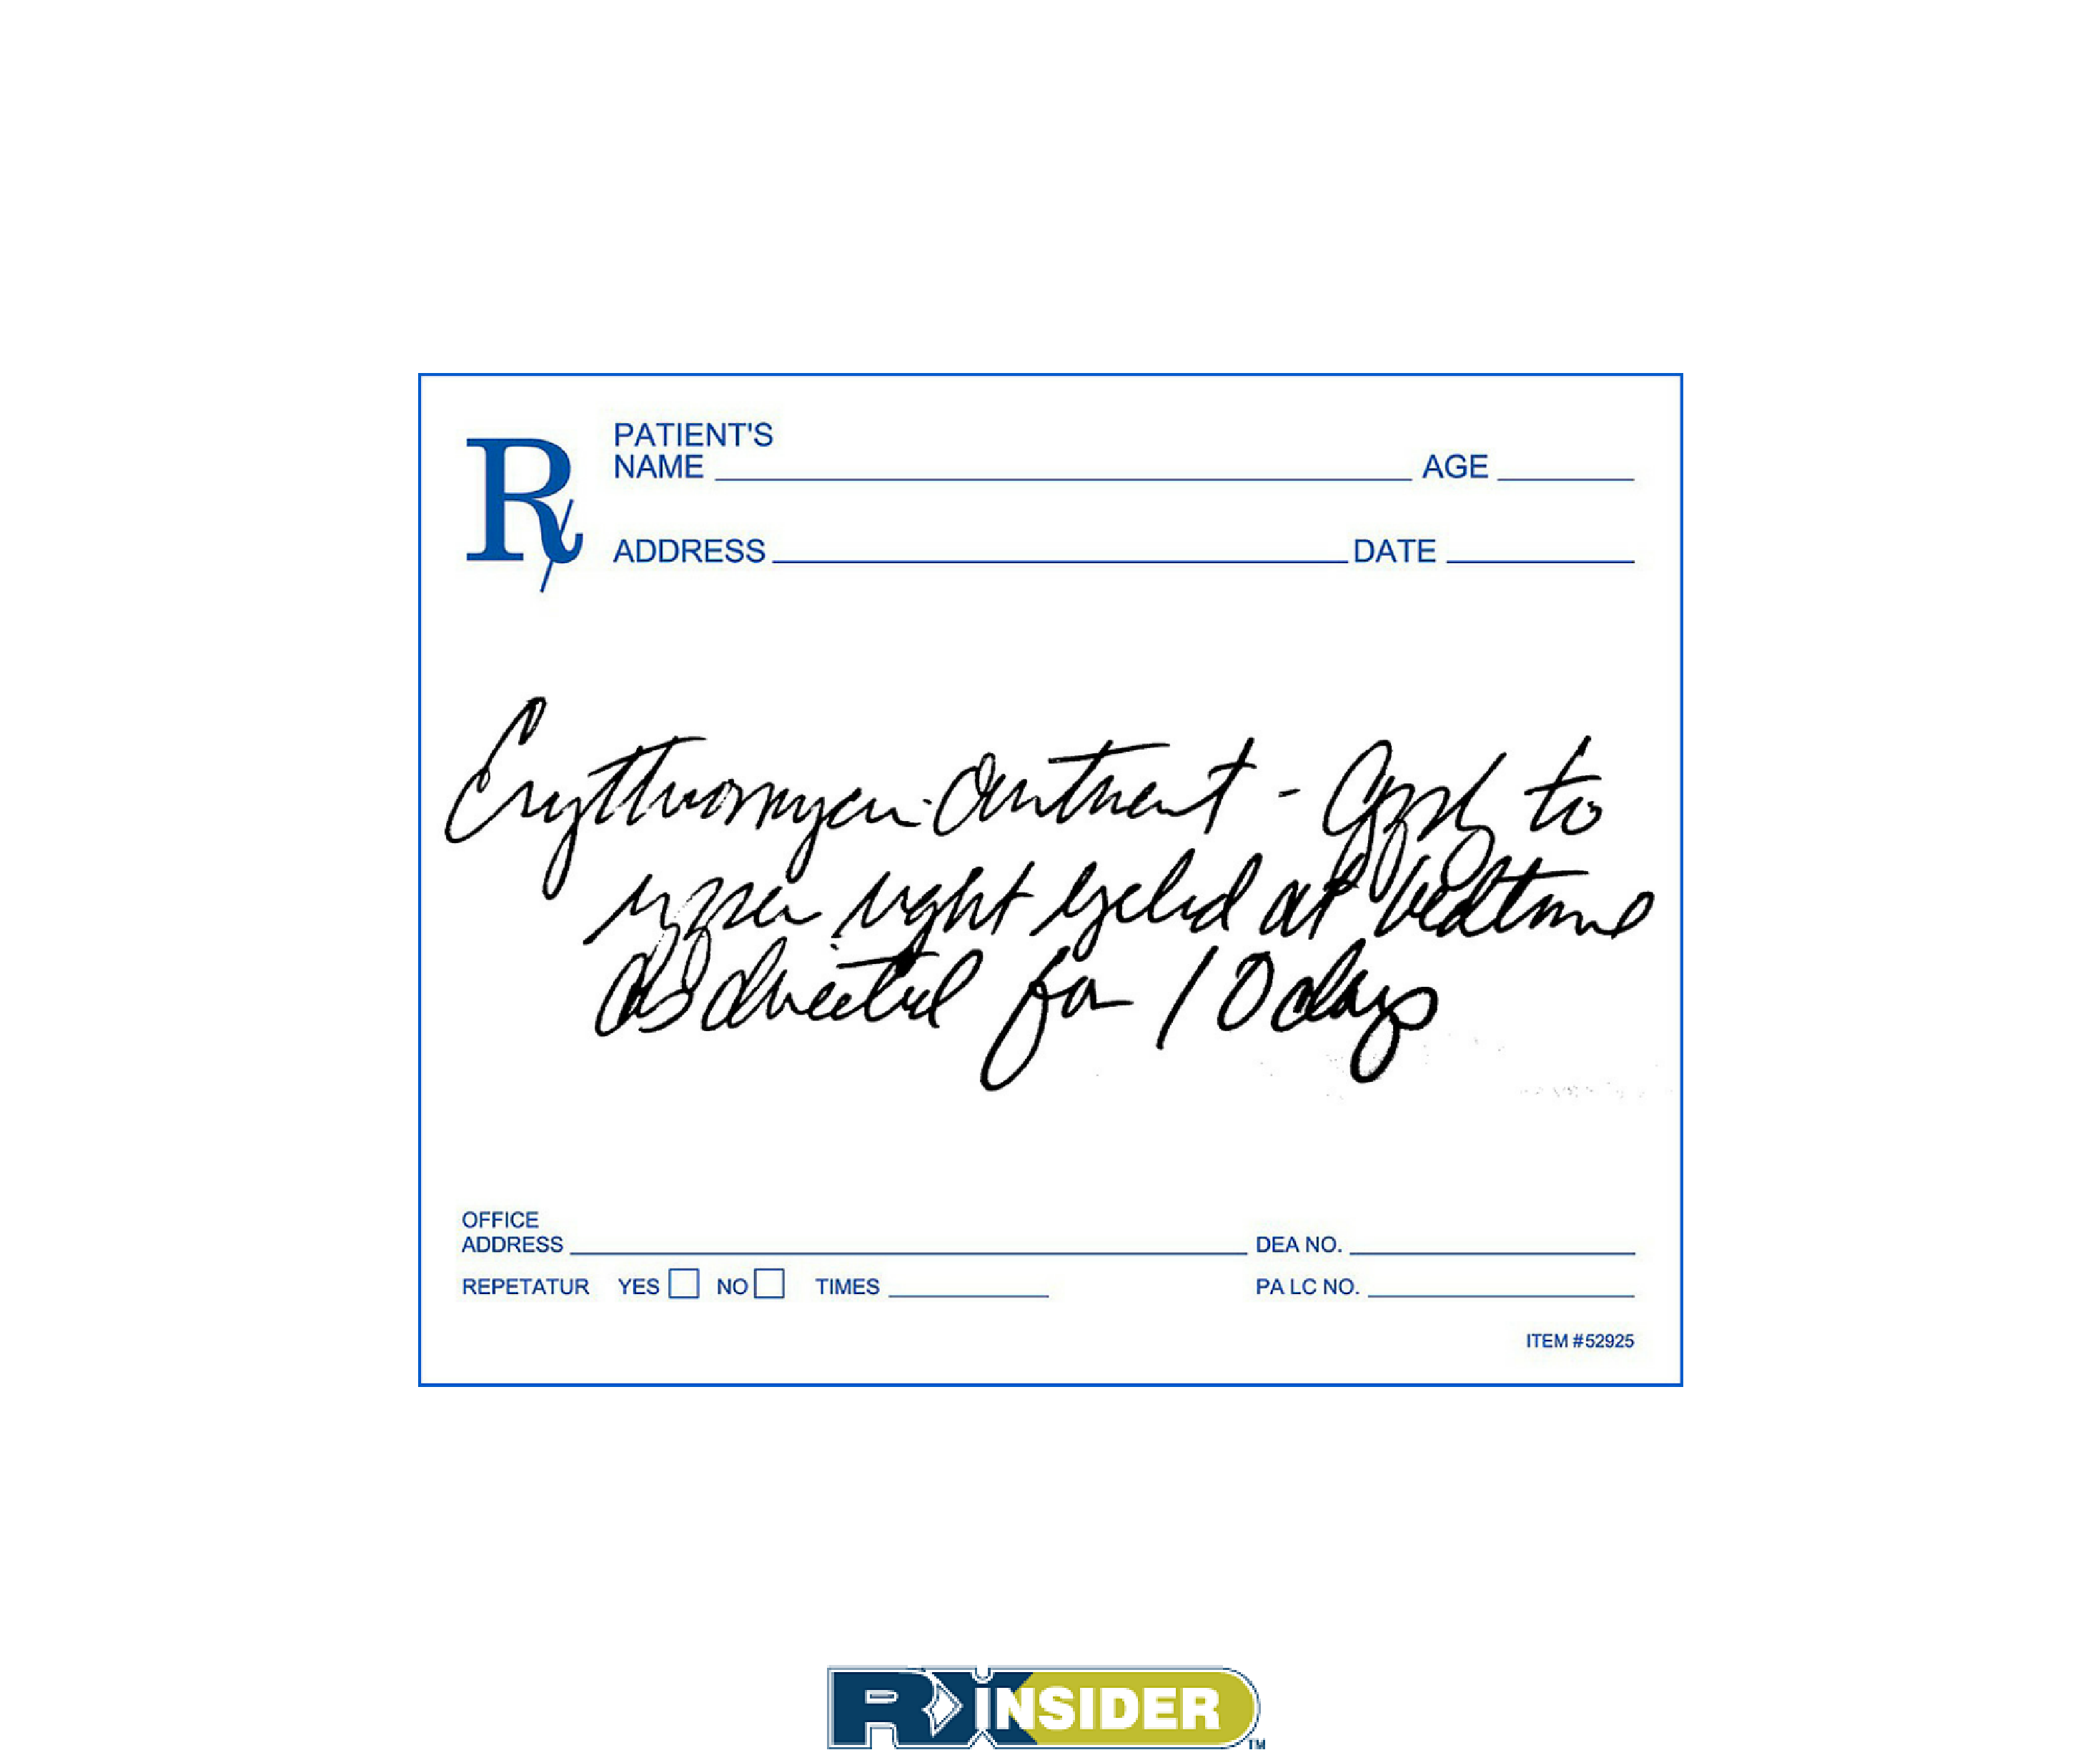 PATIENT'S
NAME AGE
Rx
ADDRESS DATE
Erythromycin Ointment - Apply to
upper right eyelid at bedtime
as directed for 10 days
OFFICE
ADDRESS DEA NO.
REPETATUR YES NO TIMES PA LC NO.
ITEM #52925
RXINSIDER TM